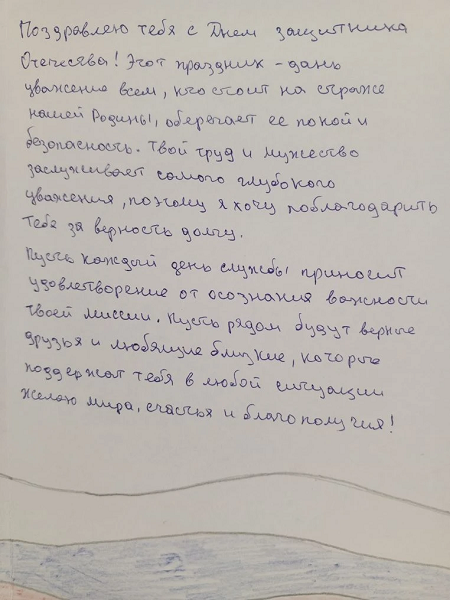 Поздравляю тебя с Днем защитника
Отечества! Этот праздник - дань
уважение всем, кто стоит на страже
нашей Родины, оберегает ее покой и
безопасность. Твой труд и мужество
заслуживает самого глубокого
уважения, поэтому я хочу поблагодарить
тебе за верность долгу.
Пусть каждый день службы приносит
удовлетворение от осознания важности
твоей миссии. Пусть рядом будут верные
друзья и любящие близкие, которые
поддержат тебя в любой ситуации
желаю мира, счастья и благополучия!